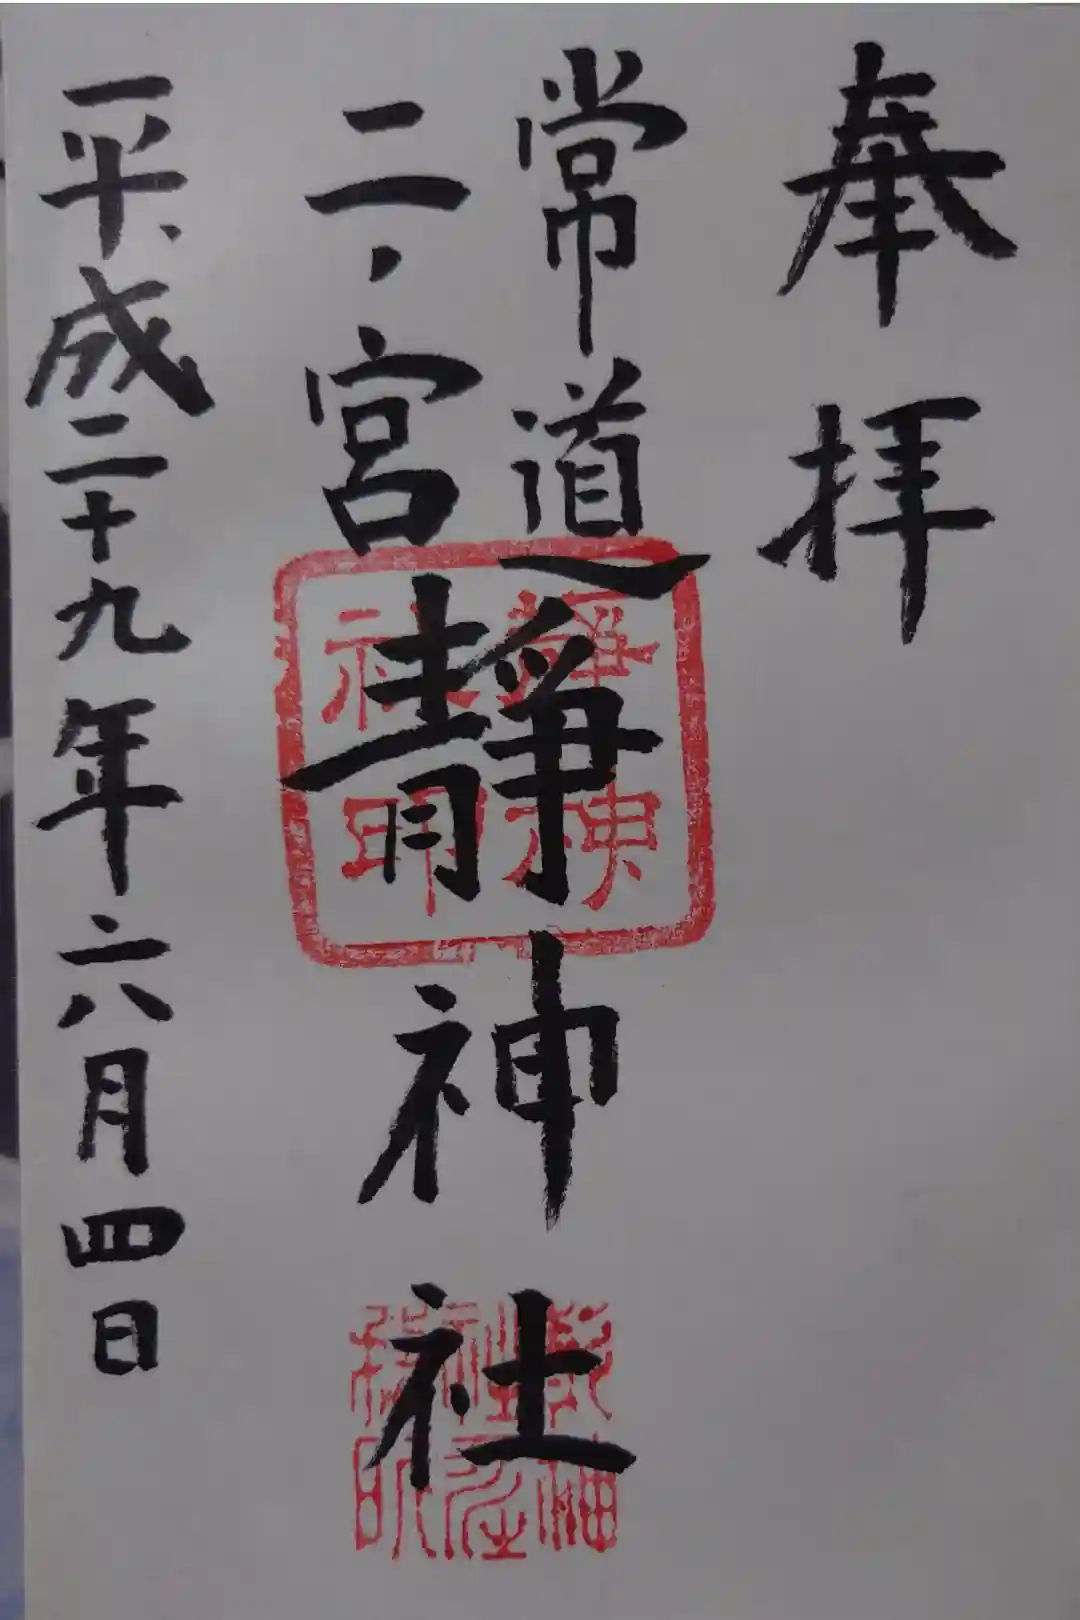 奉拝
常道
二ノ宮
靜神社
靜神
社印
平成二十九年六月四日